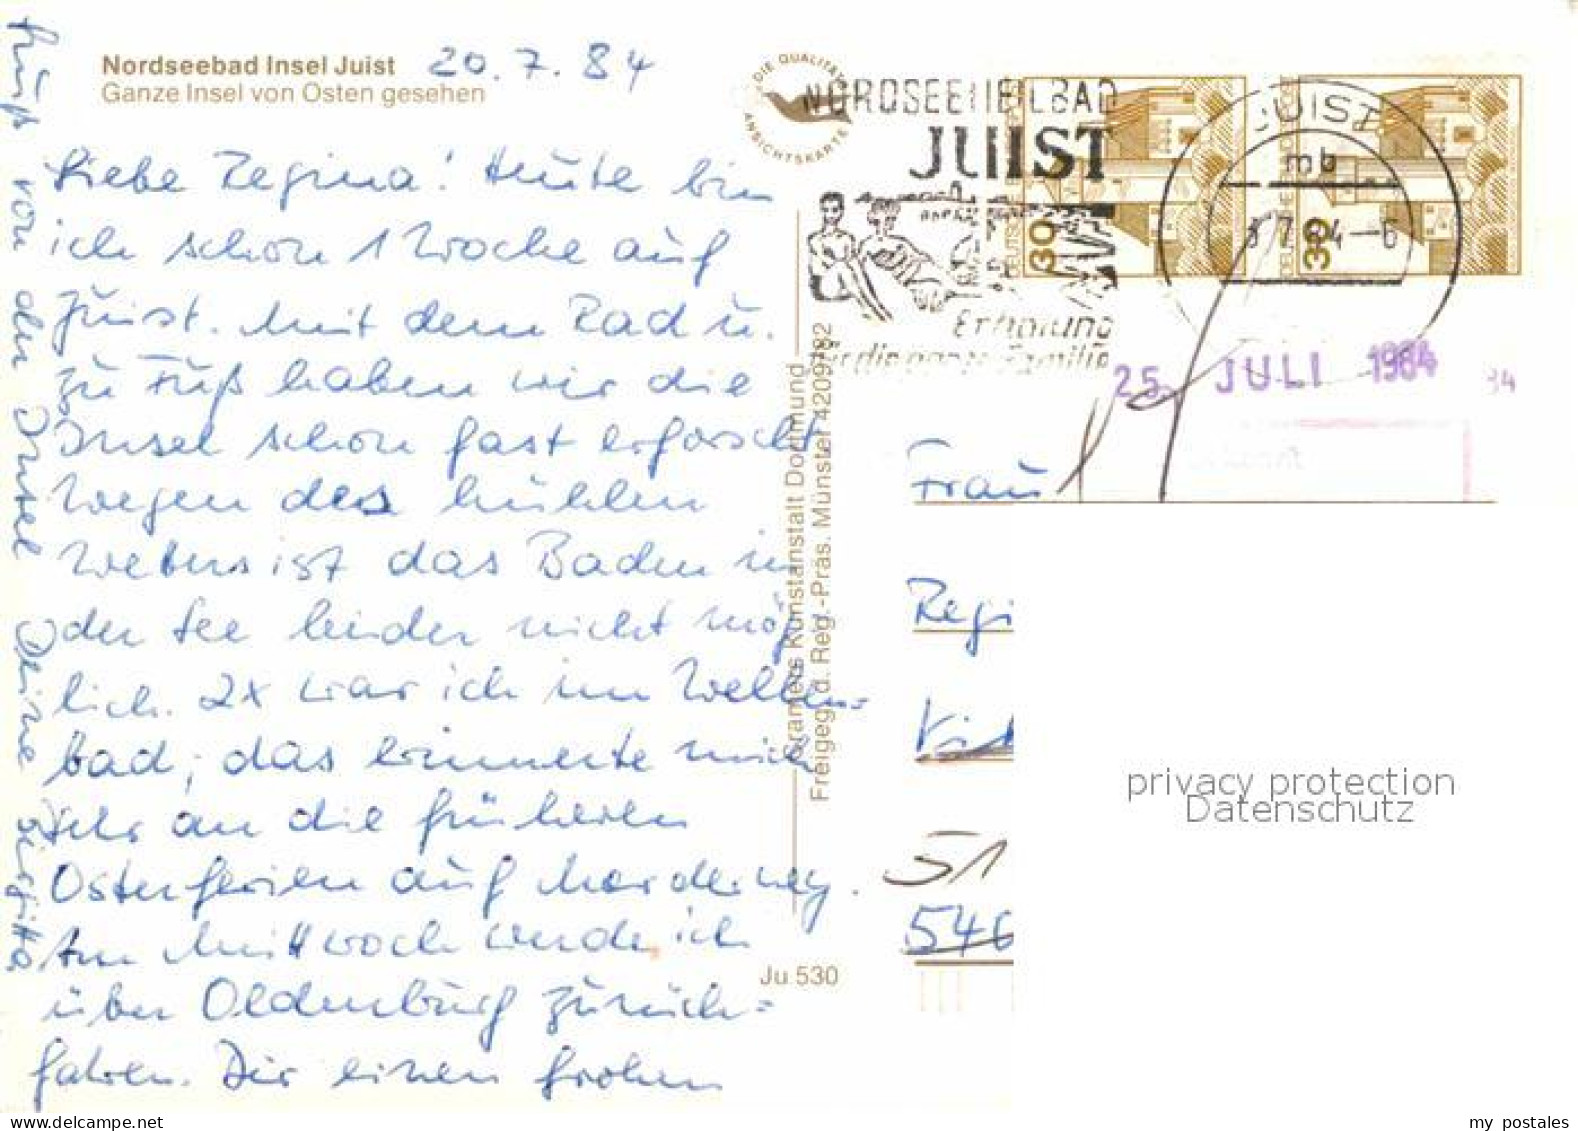 Nordseebad Insel Juist 20.7.84
Ganze Insel von Osten gesehen
Liebe Regina! Heute bin
ich schon 1 Woche auf
Juist. Mit dem Rad u.
zu Fuß haben wir die
Insel schon fast erforscht
Wegen des kühlen
Wetters ist das Baden in
der See leider nicht mög
lich. 2x war ich im Wellen=
bad, das erinnerte mich
sehr an die früheren
Osterferien auf Norderney.
Am Mittwoch werde ich
über Oldenburg zurück=
fahren. Dir einen frohen
Gruß von der Insel Deine Birgitta
DIE QUALITÄTS
ANSICHTSKARTE
Kramers Kunstanstalt Dortmund
Freigeg. d. Reg.-Präs. Münster 4209/82
Ju 530
NORDSEEHEILBAD
JUIST
Erholung
für die ganze Familie
DEUTSCHE BUNDESPOST
30
DEUTSCHE BUNDESPOST
30
JUIST
mb
25. JULI 1984
84
Frau
Regi
51
546
privacy protection
Datenschutz
my postales